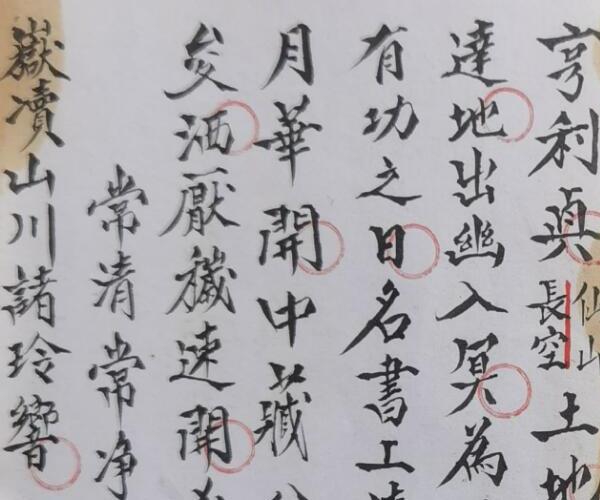 亨利真
仙山
長空
土地
達地出幽入冥為
有功之日名書上
月華開中藏
洒厭穢速開
常清常净
嶽凟山川諸玲響